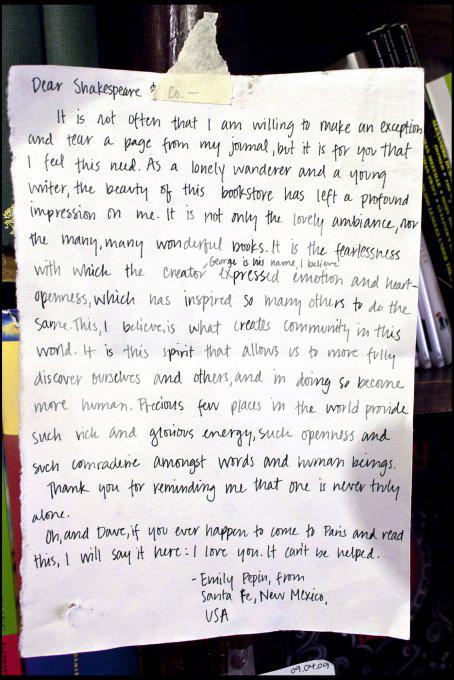 Dear Shakespeare & Co.—
It is not often that I am willing to make an exception
and tear a page from my journal, but it is for you that
I feel this need. As a lonely wanderer and a young
writer, the beauty of this bookstore has left a profound
impression on me. It is not only the lovely ambiance, nor
the many, many wonderful books. It is the fearlessness
George is his name, I believe
with which the creator expressed emotion and heart-
openness, which has inspired so many others to do the
same. This, I believe, is what creates community in this
world. It is this spirit that allows us to more fully
discover ourselves and others, and in doing so become
more human. Precious few places in the world provide
such rich and glorious energy, such openness and
such comraderie amongst words and human beings.
Thank you for reminding me that one is never truly
alone.
Oh, and Dave, if you ever happen to come to Paris and read
this, I will say it here: I love you. It can't be helped.
- Emily Pepin, from
Santa Fe, New Mexico,
USA
09.04.09